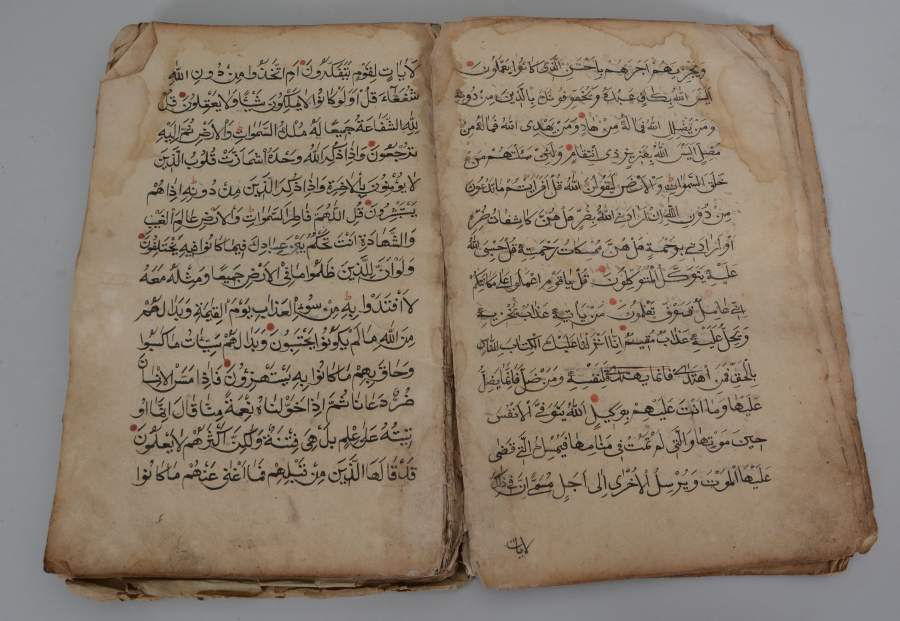 ويجزيهم اجرهم باحسن الذي كانوا يعملون
اليس الله بكاف عبده ويخوفونك بالذين من دونه
ومن يضلل الله فما له من هاد ومن يهدى الله فما له من
مضل اليس الله بعزيز ذى انتقام ولئن سالتهم من
خلق السموات والارض ليقولن الله قل افرايتم ما تدعون
من دون الله ان ارادنى الله بضر هل هن كاشفات ضره
او ارادنى برحمة هل هن ممسكات رحمته قل حسبى الله
عليه يتوكل المتوكلون قل ياقوم اعملوا على مكانتكم
انى عامل فسوف تعلمون من يأتيه عذاب يخزيه
ويحل عليه عذاب مقيم انا انزلنا عليك الكتاب للناس
بالحق فمن اهتدى فانما يهتدى لنفسه ومن ضل فانما يضل
عليها وما انت عليهم بوكيل الله يتوفى الانفس
حين موتها والتى لم تمت فى منامها فيمسك التى قضى
عليها الموت ويرسل الاخرى الى اجل مسمى ان فى ذلك
لايات
لايات لقوم يتفكرون ام اتخذوا من دون الله
شفعاء قل اولو كانوا لا يملكون شيئا ولا يعقلون قل
لله الشفاعة جميعا له ملك السموات والارض ثم اليه
ترجعون واذا ذكر الله وحده اشمازت قلوب الذين
لا يؤمنون بالاخرة واذا ذكر الذين من دونه اذا هم
يستبشرون قل اللهم فاطر السموات والارض عالم الغيب
والشهادة انت تحكم بين عبادك فيما كانوا فيه يختلفون
ولو ان للذين ظلموا ما فى الارض جميعا ومثله معه
لافتدوا به من سوء العذاب يوم القيمة وبدا لهم
من الله ما لم يكونوا يحتسبون وبدا لهم سيئات ما كسبوا
وحاق بهم ما كانوا به يستهزؤن فاذا مس الانسان
ضر دعانا ثم اذا خولناه نعمة منا قال انما او
تيته على علم بل هى فتنة ولكن اكثرهم لا يعلمون
قد قالها الذين من قبلهم فما اغنى عنهم ما كانوا